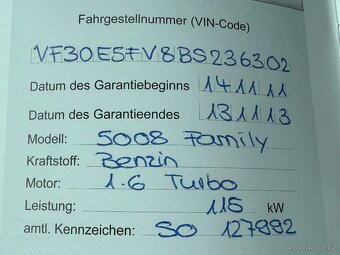 Fahrgestellnummer (VIN-Code)
VF30E5FV8BS236302
Datum des Garantiebeginns 141111
Datum des Garantieendes 131113
Modell: 5008 Family
Kraftstoff: Benzin
Motor: 1.6 Turbo
Leistung: 115 kW
amtl. Kennzeichen: SO 127992
Bazos.cz